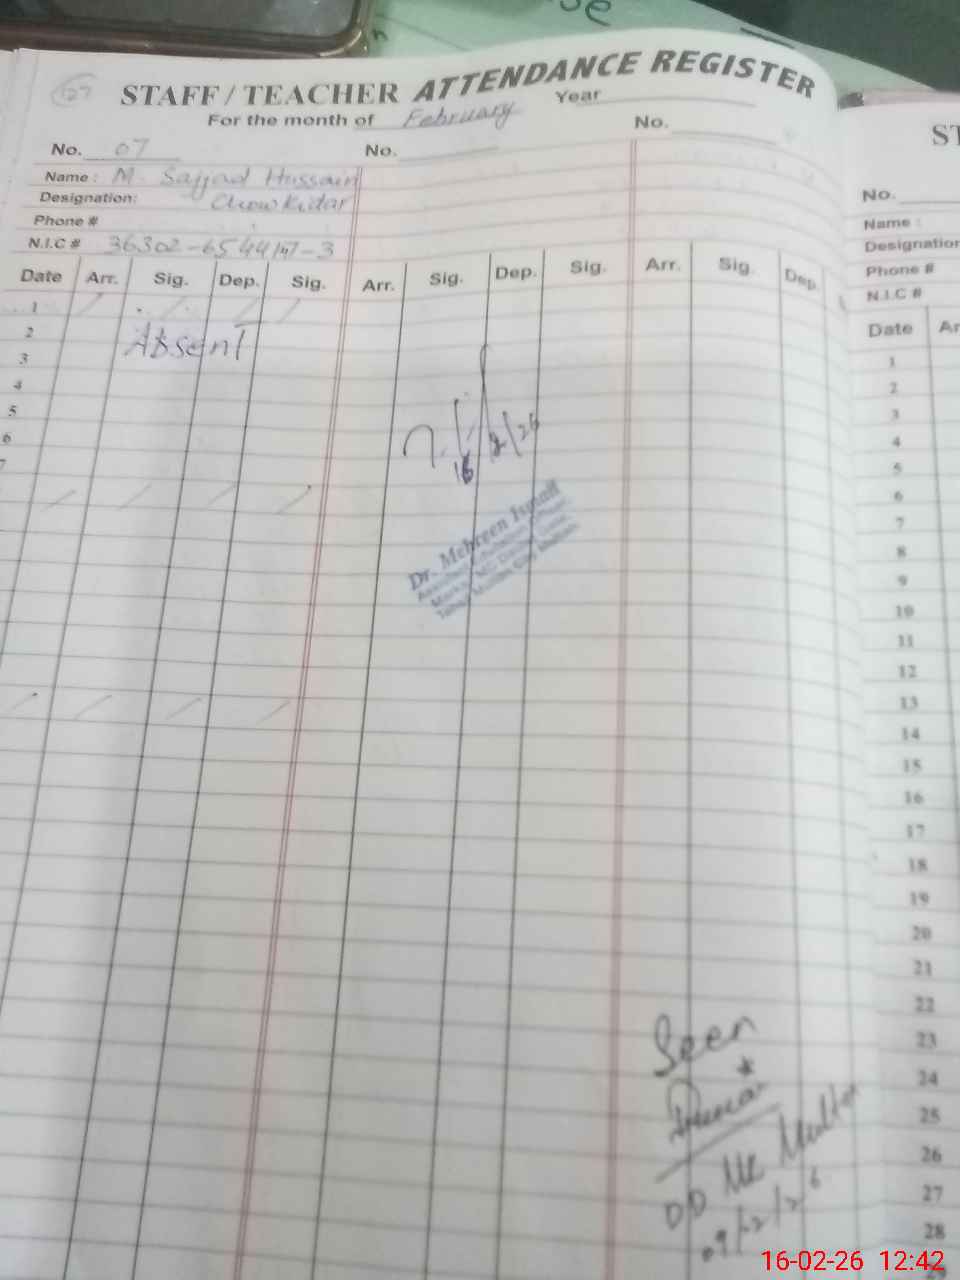 27
STAFF / TEACHER ATTENDANCE REGISTER
For the month of February Year
No. 07 No. No.
Name : M. Sajjad Hussain
Designation: Chowkidar
Phone #
N.I.C # 36302-6544
Date Arr. Sig. Dep. Sig. Arr. Sig. Dep. Sig. Arr. Sig. Dep.
1
2 Absent
3
4
5
6
7
16/2/26
Dr. Mehreen Ismail
Seen
DD
09/2/26
ST
No.
Name :
Designation
Phone #
N.I.C #
Date Ar
1
2
3
4
5
6
7
8
9
10
11
12
13
14
15
16
17
18
19
20
21
22
23
24
25
26
27
28
16-02-26 12:42